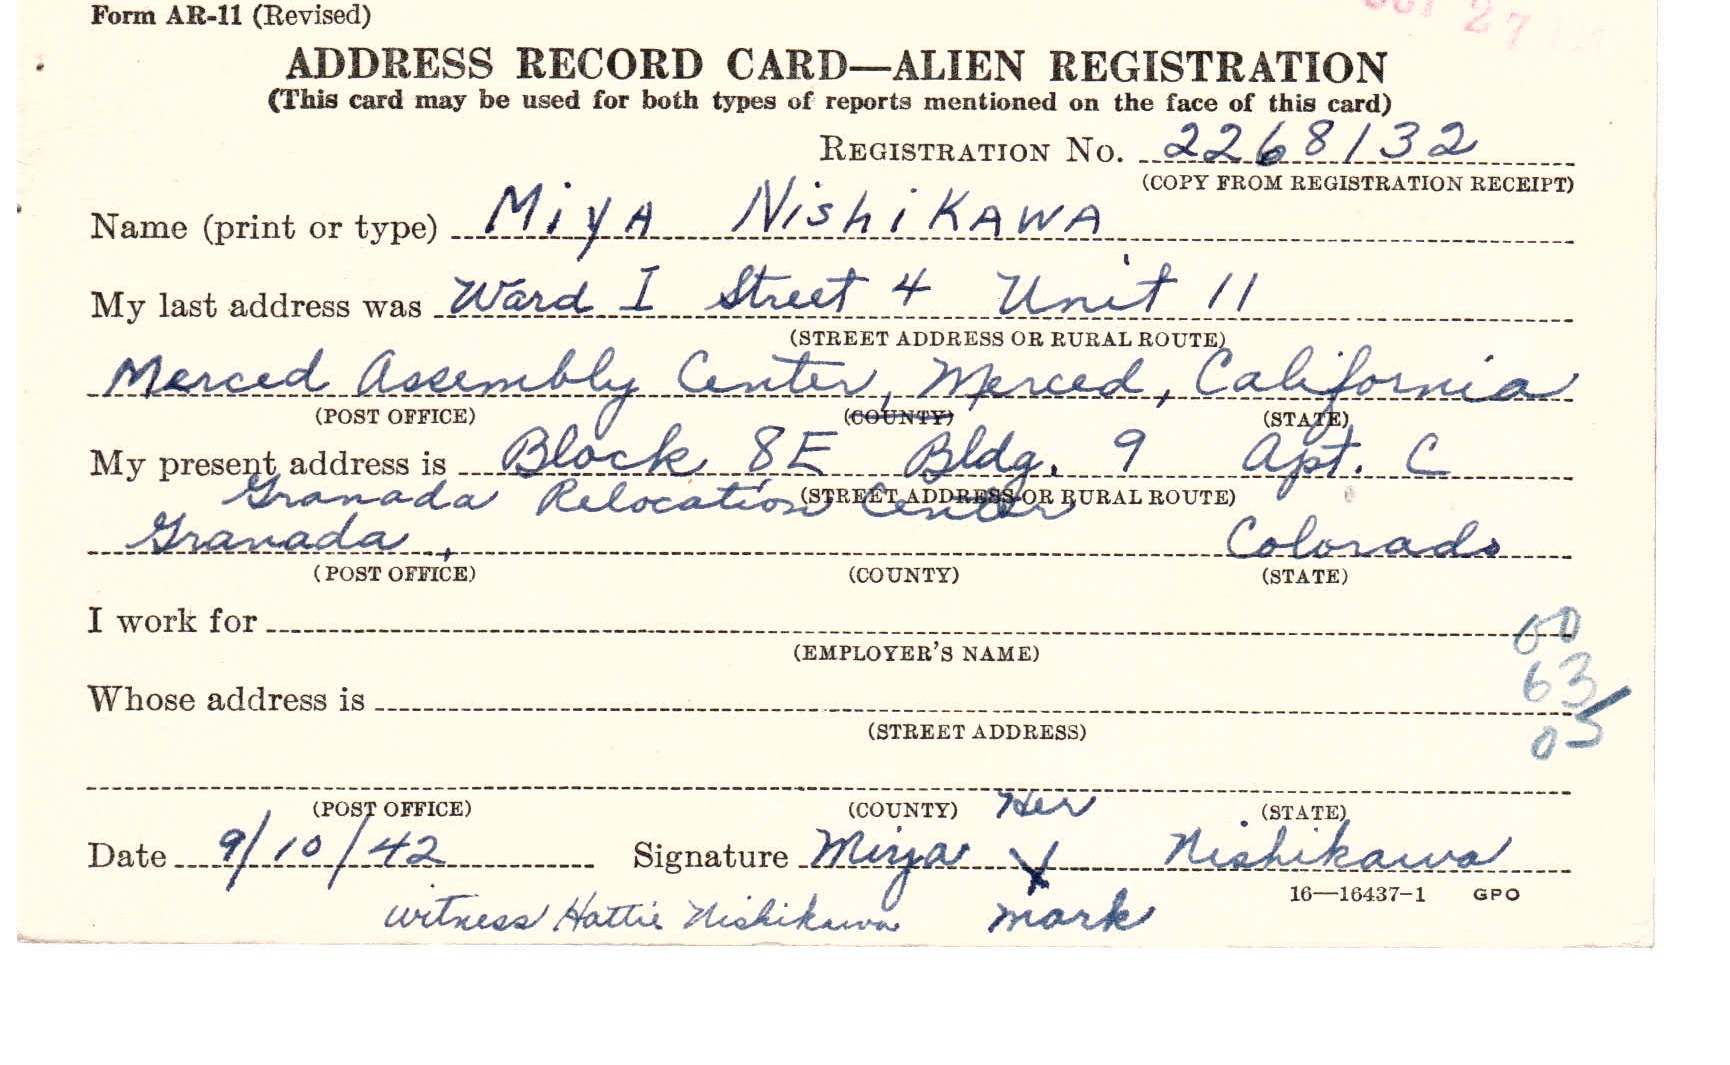 Form AR-11 (Revised)
27
ADDRESS RECORD CARD—ALIEN REGISTRATION
(This card may be used for both types of reports mentioned on the face of this card)
REGISTRATION No. 2268132
(COPY FROM REGISTRATION RECEIPT)
Name (print or type) MiyA NishiKAWA
My last address was Ward I Street 4 Unit 11
(STREET ADDRESS OR RURAL ROUTE)
Merced Assembly Center, Merced, California
(POST OFFICE) (COUNTY) (STATE)
My present address is Block 8E Bldg. 9 Apt. C
Granada Relocation Center (STREET ADDRESS OR RURAL ROUTE)
Granada, Colorado
(POST OFFICE) (COUNTY) (STATE)
I work for
(EMPLOYER'S NAME)
60
63
Whose address is
(STREET ADDRESS)
05
(POST OFFICE) (COUNTY) Her (STATE)
Date 9/10/42 Signature Miya X Nishikawa
16—16437-1 GPO
witness Hattie Nishikawa mark